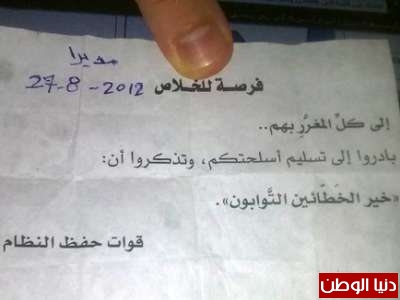 مديرا
27-8-2012
فرصة للخلاص
إلى كلِّ المغرَّرِ بهم..
بادروا إلى تسليم أسلحتكم، وتذكروا أن:
«خير الخَطَّائين التَّوابون».
قوات حفظ النظام
دنيا الوطن